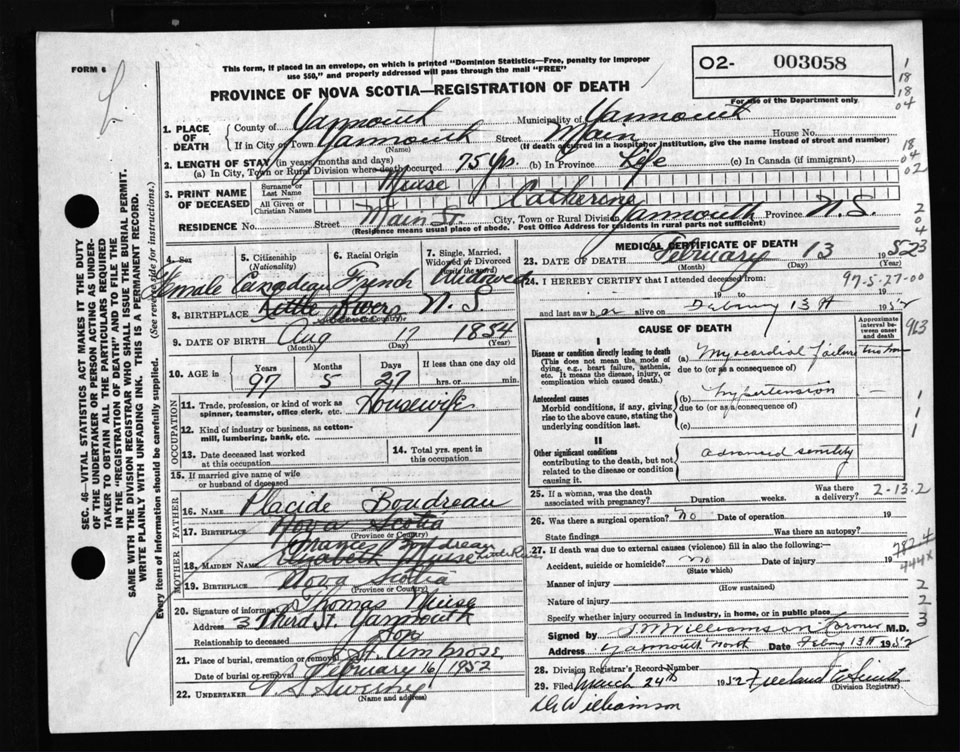 FORM 6
This form, if placed in an envelope, on which is printed "Dominion Statistics—Free, penalty for improper
use $50," and properly addressed will pass through the mail "FREE"
PROVINCE OF NOVA SCOTIA—REGISTRATION OF DEATH
02- 003058
For use of the Department only
SEC. 46—VITAL STATISTICS ACT MAKES IT THE DUTY
OF THE UNDERTAKER OR PERSON ACTING AS UNDER-
TAKER TO OBTAIN ALL THE PARTICULARS REQUIRED
IN THE "REGISTRATION OF DEATH" AND TO FILE THE
SAME WITH THE DIVISION REGISTRAR WHO SHALL ISSUE THE BURIAL PERMIT.
WRITE PLAINLY WITH UNFADING INK. THIS IS A PERMANENT RECORD.
Every item of information should be carefully supplied. (See reverse side for instructions.)
1. PLACE OF DEATH
County of Yarmouth Municipality of Yarmouth
If in City or Town Yarmouth Street Main House No.
(Name) (If death occurred in a hospital or institution, give the name instead of street and number)
2. LENGTH OF STAY (in years, months and days)
(a) In City, Town or Rural Division where death occurred 75 yrs. (b) In Province Life (c) In Canada (if immigrant)
3. PRINT NAME OF DECEASED
Surname or Last Name Meuse
All Given or Christian Names Catherine
RESIDENCE No. Street Main St. City, Town or Rural Division Yarmouth Province N.S.
(Residence means usual place of abode. Post Office Address for residents in rural parts not sufficient)
4. Sex Female
5. Citizenship (Nationality) Canadian
6. Racial Origin French
7. Single, Married, Widowed or Divorced (write the word) Widowed
8. BIRTHPLACE Little River N.S.
(Province or Country)
9. DATE OF BIRTH Aug 17 1854
(Month) (Day) (Year)
10. AGE in Years Months Days If less than one day old
97 5 27 hrs. or min.
OCCUPATION
11. Trade, profession, or kind of work as spinner, teamster, office clerk, etc. Housewife
12. Kind of industry or business, as cotton-mill, lumbering, bank, etc.
13. Date deceased last worked at this occupation
14. Total yrs. spent in this occupation
15. If married give name of wife or husband of deceased
FATHER
16. NAME Placide Boudreau
17. BIRTHPLACE Nova Scotia
(Province or Country)
MOTHER
18. MAIDEN NAME Elizabeth Meuse
19. BIRTHPLACE Nova Scotia
(Province or Country)
20. Signature of informant Thomas Meuse
Address 3 Third St. Yarmouth
Relationship to deceased Son
21. Place of burial, cremation or removal St. Ambrose
Date of burial or removal February 16/1952
22. UNDERTAKER V. S. Sweeny
(Name and address)
MEDICAL CERTIFICATE OF DEATH
23. DATE OF DEATH February 13 1952
(Month) (Day) (Year)
24. I HEREBY CERTIFY that I attended deceased from:
97-5-27-00
19 to 19
and last saw her alive on February 13th 1952
CAUSE OF DEATH
Approximate interval between onset and death
I
Disease or condition directly leading to death
(This does not mean the mode of dying, e.g., heart failure, asthenia, etc. It means the disease, injury, or complication which caused death.)
(a) Myocardial failure
due to (or as a consequence of)
Antecedent causes
Morbid conditions, if any, giving rise to the above cause, stating the underlying condition last.
(b) hypertension
due to (or as a consequence of)
(c)
II
Other significant conditions
contributing to the death, but not related to the disease or condition causing it.
advanced senility
25. If a woman, was the death associated with pregnancy? Duration weeks. Was there a delivery? 2-13-2
26. Was there a surgical operation? No Date of operation 19
State findings Was there an autopsy?
27. If death was due to external causes (violence) fill in also the following:—
Accident, suicide or homicide? no Date of injury 19
(State which)
Manner of injury
(How sustained)
Nature of injury
Specify whether injury occurred in industry, in home, or in public place
Signed by S. W. Williamson Coroner M.D.
Address Yarmouth North Date Feby 13th 1952
28. Division Registrar's Record Number
29. Filed March 24th 1952
(Division Registrar)
Williamson